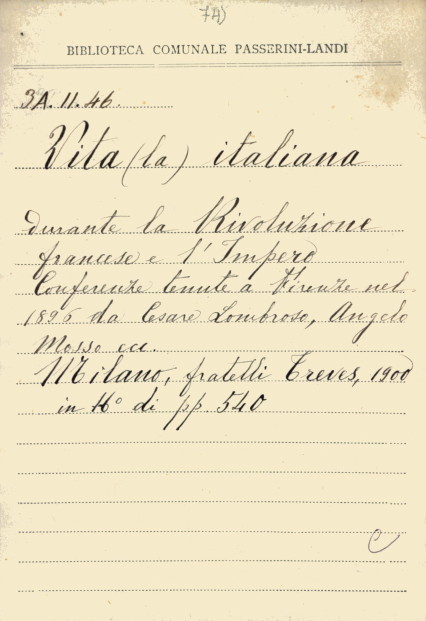 74)
BIBLIOTECA COMUNALE PASSERINI-LANDI
3A.11.46.
Vita (la) italiana
durante la Rivoluzione
francese e l'Impero
Conferenze tenute a Firenze nel
1896 da Cesare Lombroso, Angelo
Mosso ecc.
Milano, fratelli Treves, 1900
in 16° di pp. 540
C